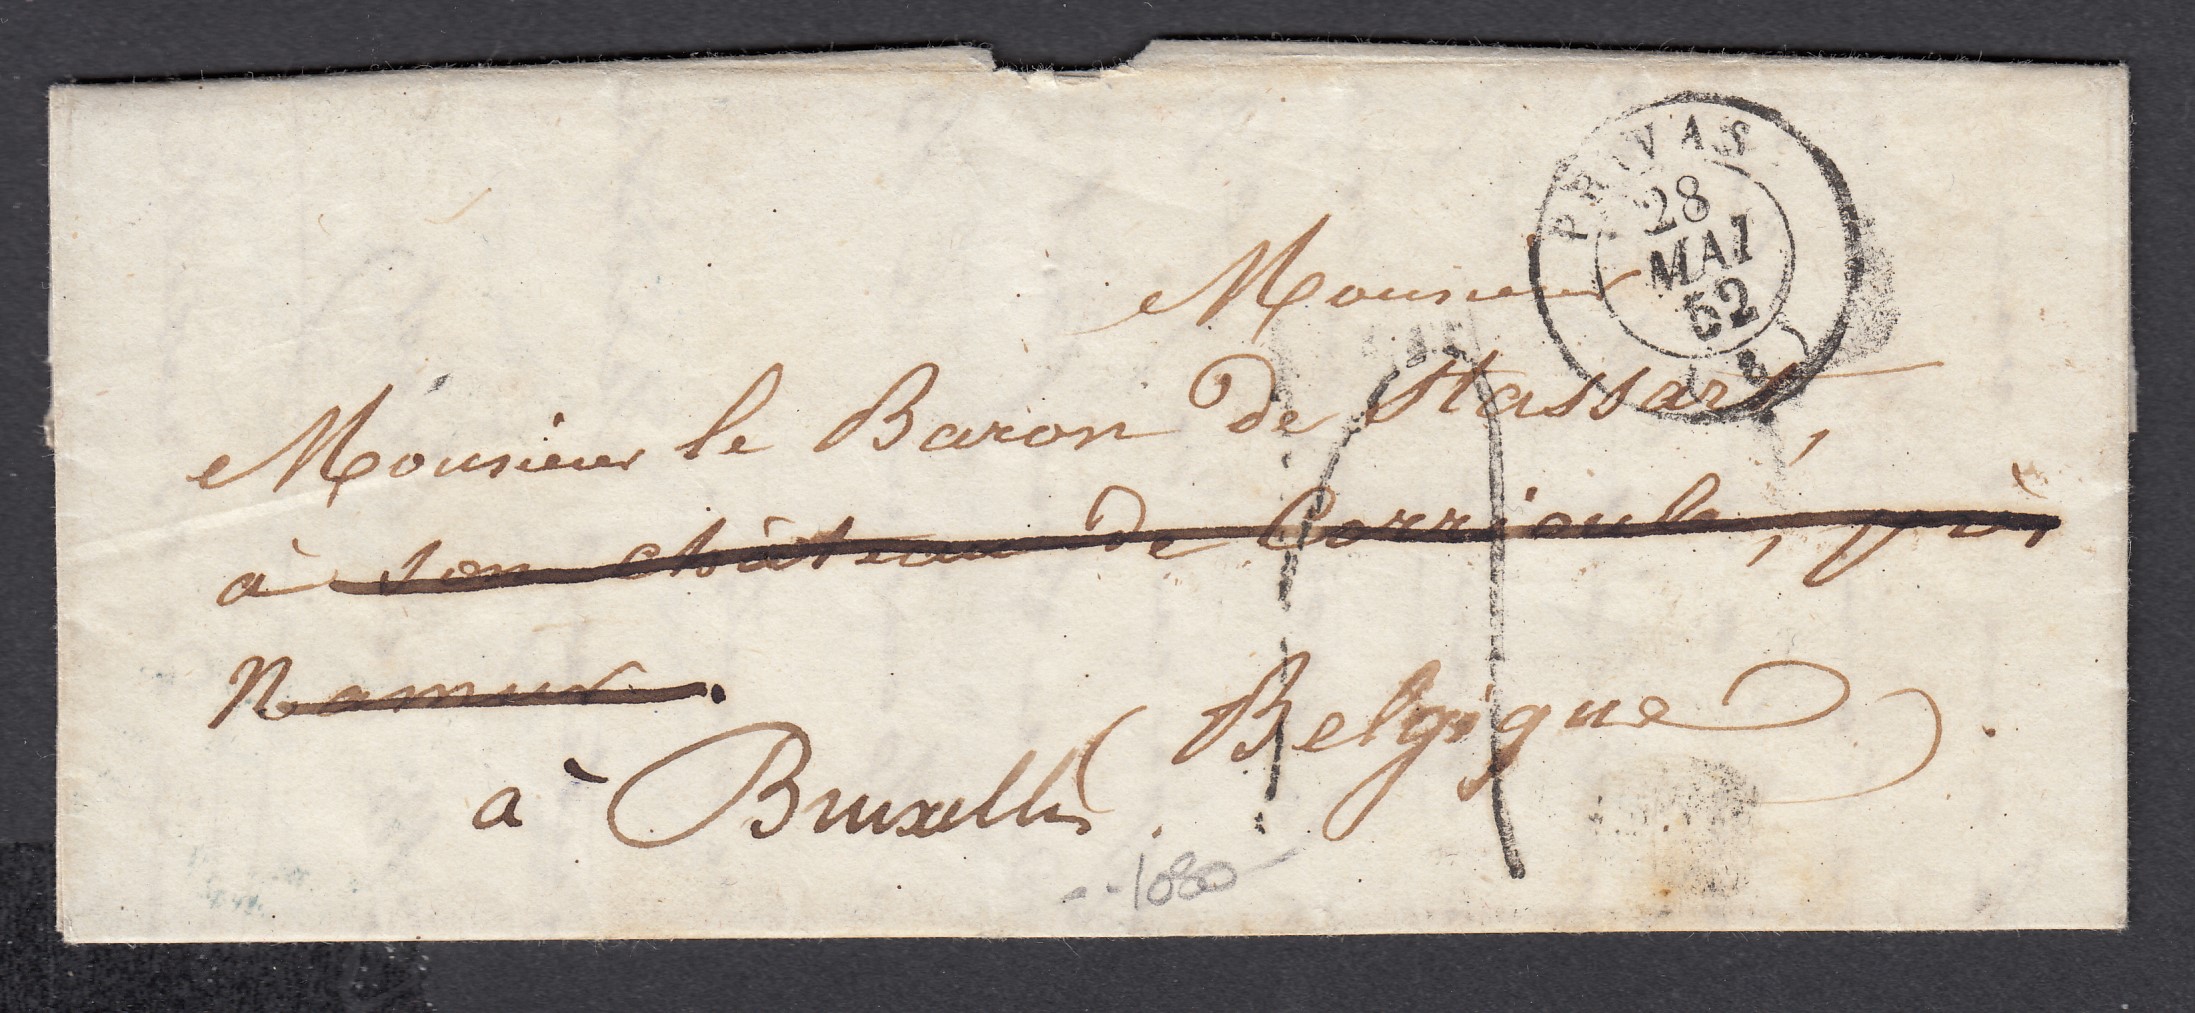 PRIVAS
28
MAI
52
Monsieur
Monsieur le Baron de Stassart,
à son château de Corrioule, près
Namur.
Belgique.
à Bruxelles.
1080